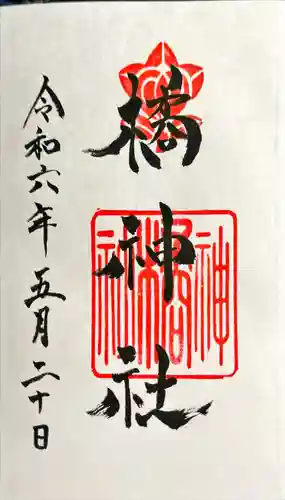 橘神社
令和六年五月二十日
橘神社